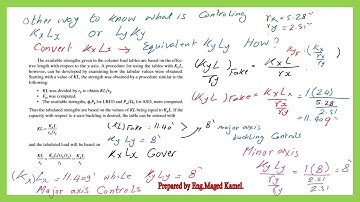 Other way to know what is Controling
KxLx or LyKy
rx = 5.28"
ry = 2.51"
Convert KxLx → Equivalent KyLy How?
The available strengths given in the column load tables are based on the effective length with respect to the y-axis. A procedure for using the tables with KxL, however, can be developed by examining how the tabular values were obtained. Starting with a value of KL, the strength was obtained by a procedure similar to the following:
• KL was divided by ry to obtain KL/ry.
• Fcr was computed.
• The available strengths, ϕcPn for LRFD and Pn/Ωc for ASD, were computed.
Thus the tabulated strengths are based on the values of KL being equal to KyL. If the capacity with respect to x-axis buckling is desired, the table can be entered with
KL = KxL / rx/ry
and the tabulated load will be based on
KL/ry = KxL/(rx/ry) / ry = KxL/rx
(KyL)Fake / ry = KxL / rx
(KyL)Fake = KxLx / rx/ry = 1(24) / 5.28/2.51
= 11.409'
(KL)Fake = 11.40' > 8'
KyLy = 8'
KxLx Gover
major axis
buckling Controls
Minor axis
KyLy / ry = 1(8) / 2.51/2.51 = 8'
(Kx)Lx = 11.409' while KyLy = 8'
Major axis Controls
Prepared by Eng.Maged Kamel.